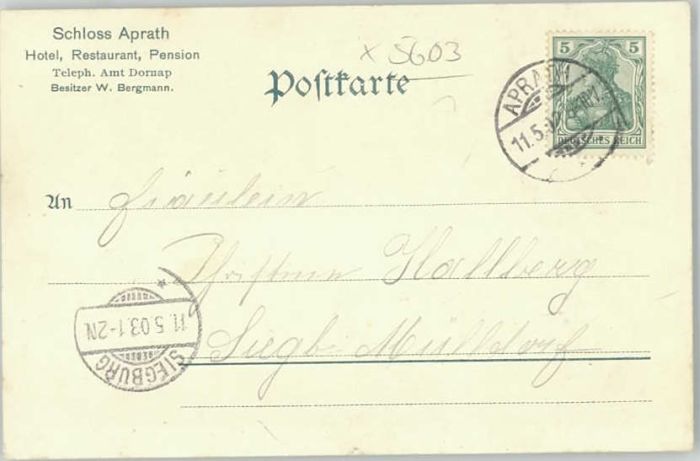 Schloss Aprath
Hotel, Restaurant, Pension
Teleph. Amt Dornap
Besitzer W. Bergmann.
x 5603
Postkarte
5 5
DEUTSCHES REICH
APRATH
11.5.02
An Fräulein
Christine Hallberg
Siegb. Mülldorf
SIEGBURG
11.5.03.1-2N